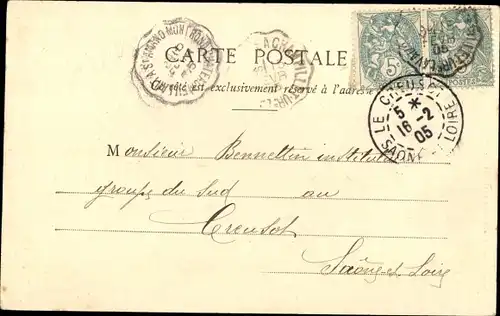 CARTE POSTALE
Ce côté est exclusivement réservé à l'adresse
5c
LE CREUSOT
5 *
16-2
05
SAONE-ET-LOIRE
Monsieur Bennettin instituteur
groupe du sud au
Creusot
Saône-et-Loire